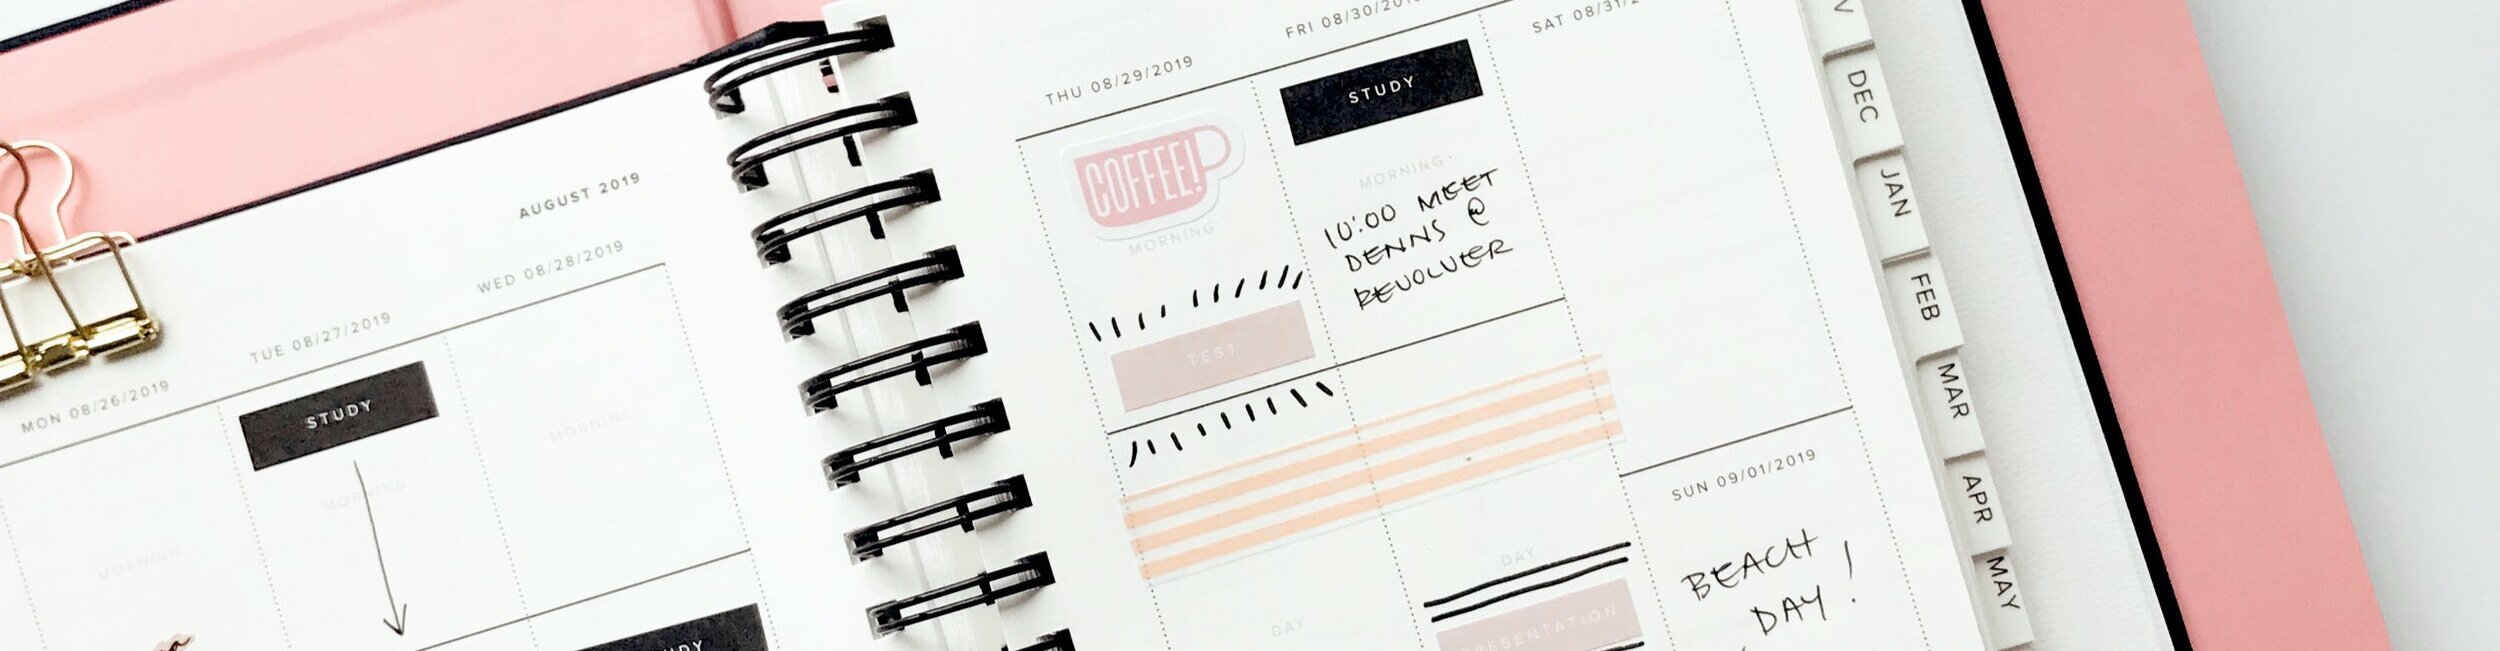 AUGUST 2019
MON 08/26/2019
MORNING
TUE 08/27/2019
STUDY
MORNING
WED 08/28/2019
MORNING
THU 08/29/2019
COFFEE!
MORNING
TEST
DAY
FRI 08/30/201
STUDY
MORNING
10:00 MEET
DENNS @
REVOLVER
DAY
PRESENTATION
SAT 08/31/2
SUN 09/01/2019
BEACH
DAY!
DEC
JAN
FEB
MAR
APR
MAY